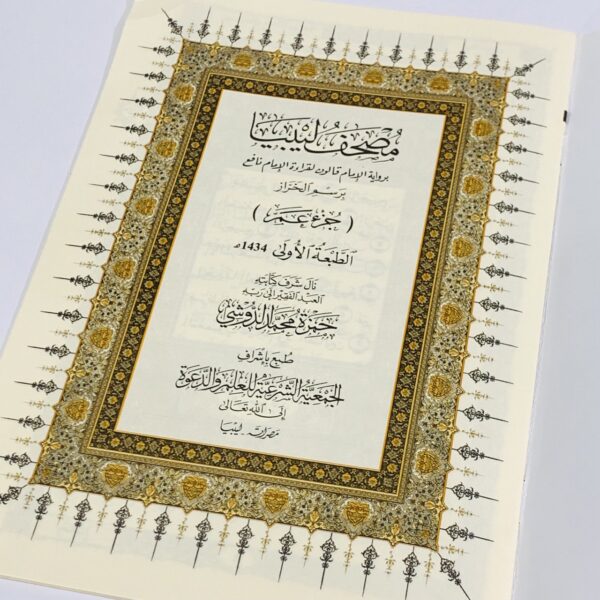 مُصْحَفُ لِيبْيَا
برواية الإمام قالون لقراءة الإمام نافع
برسم الخراز
( جُزْءُ عَمَّ )
الطَّبْعَةُ الأُولَى 1434هـ
نَالَ شَرَفَ كِتَابَتِهِ
العبد الفقير إلى ربه
حمزة محمد الدوشي
طُبِعَ بِإِشْرَافِ
الجَمْعِيَّة الشَّرْعِيَّة لِلْعِلْمِ وَالدَّعْوَةِ
إِلَى اللهِ تَعَالَى
مصراتة ليبيا